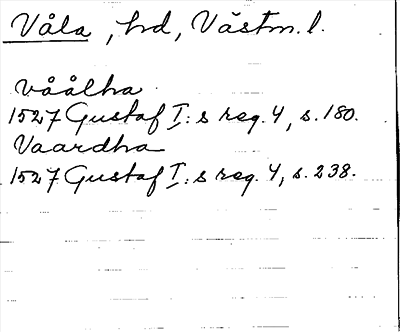 Våla, hd, Västm. l.
våålha
1527 Gustaf I:s reg. 4, s. 180.
Vaardha
1527 Gustaf I:s reg. 4, s. 238.